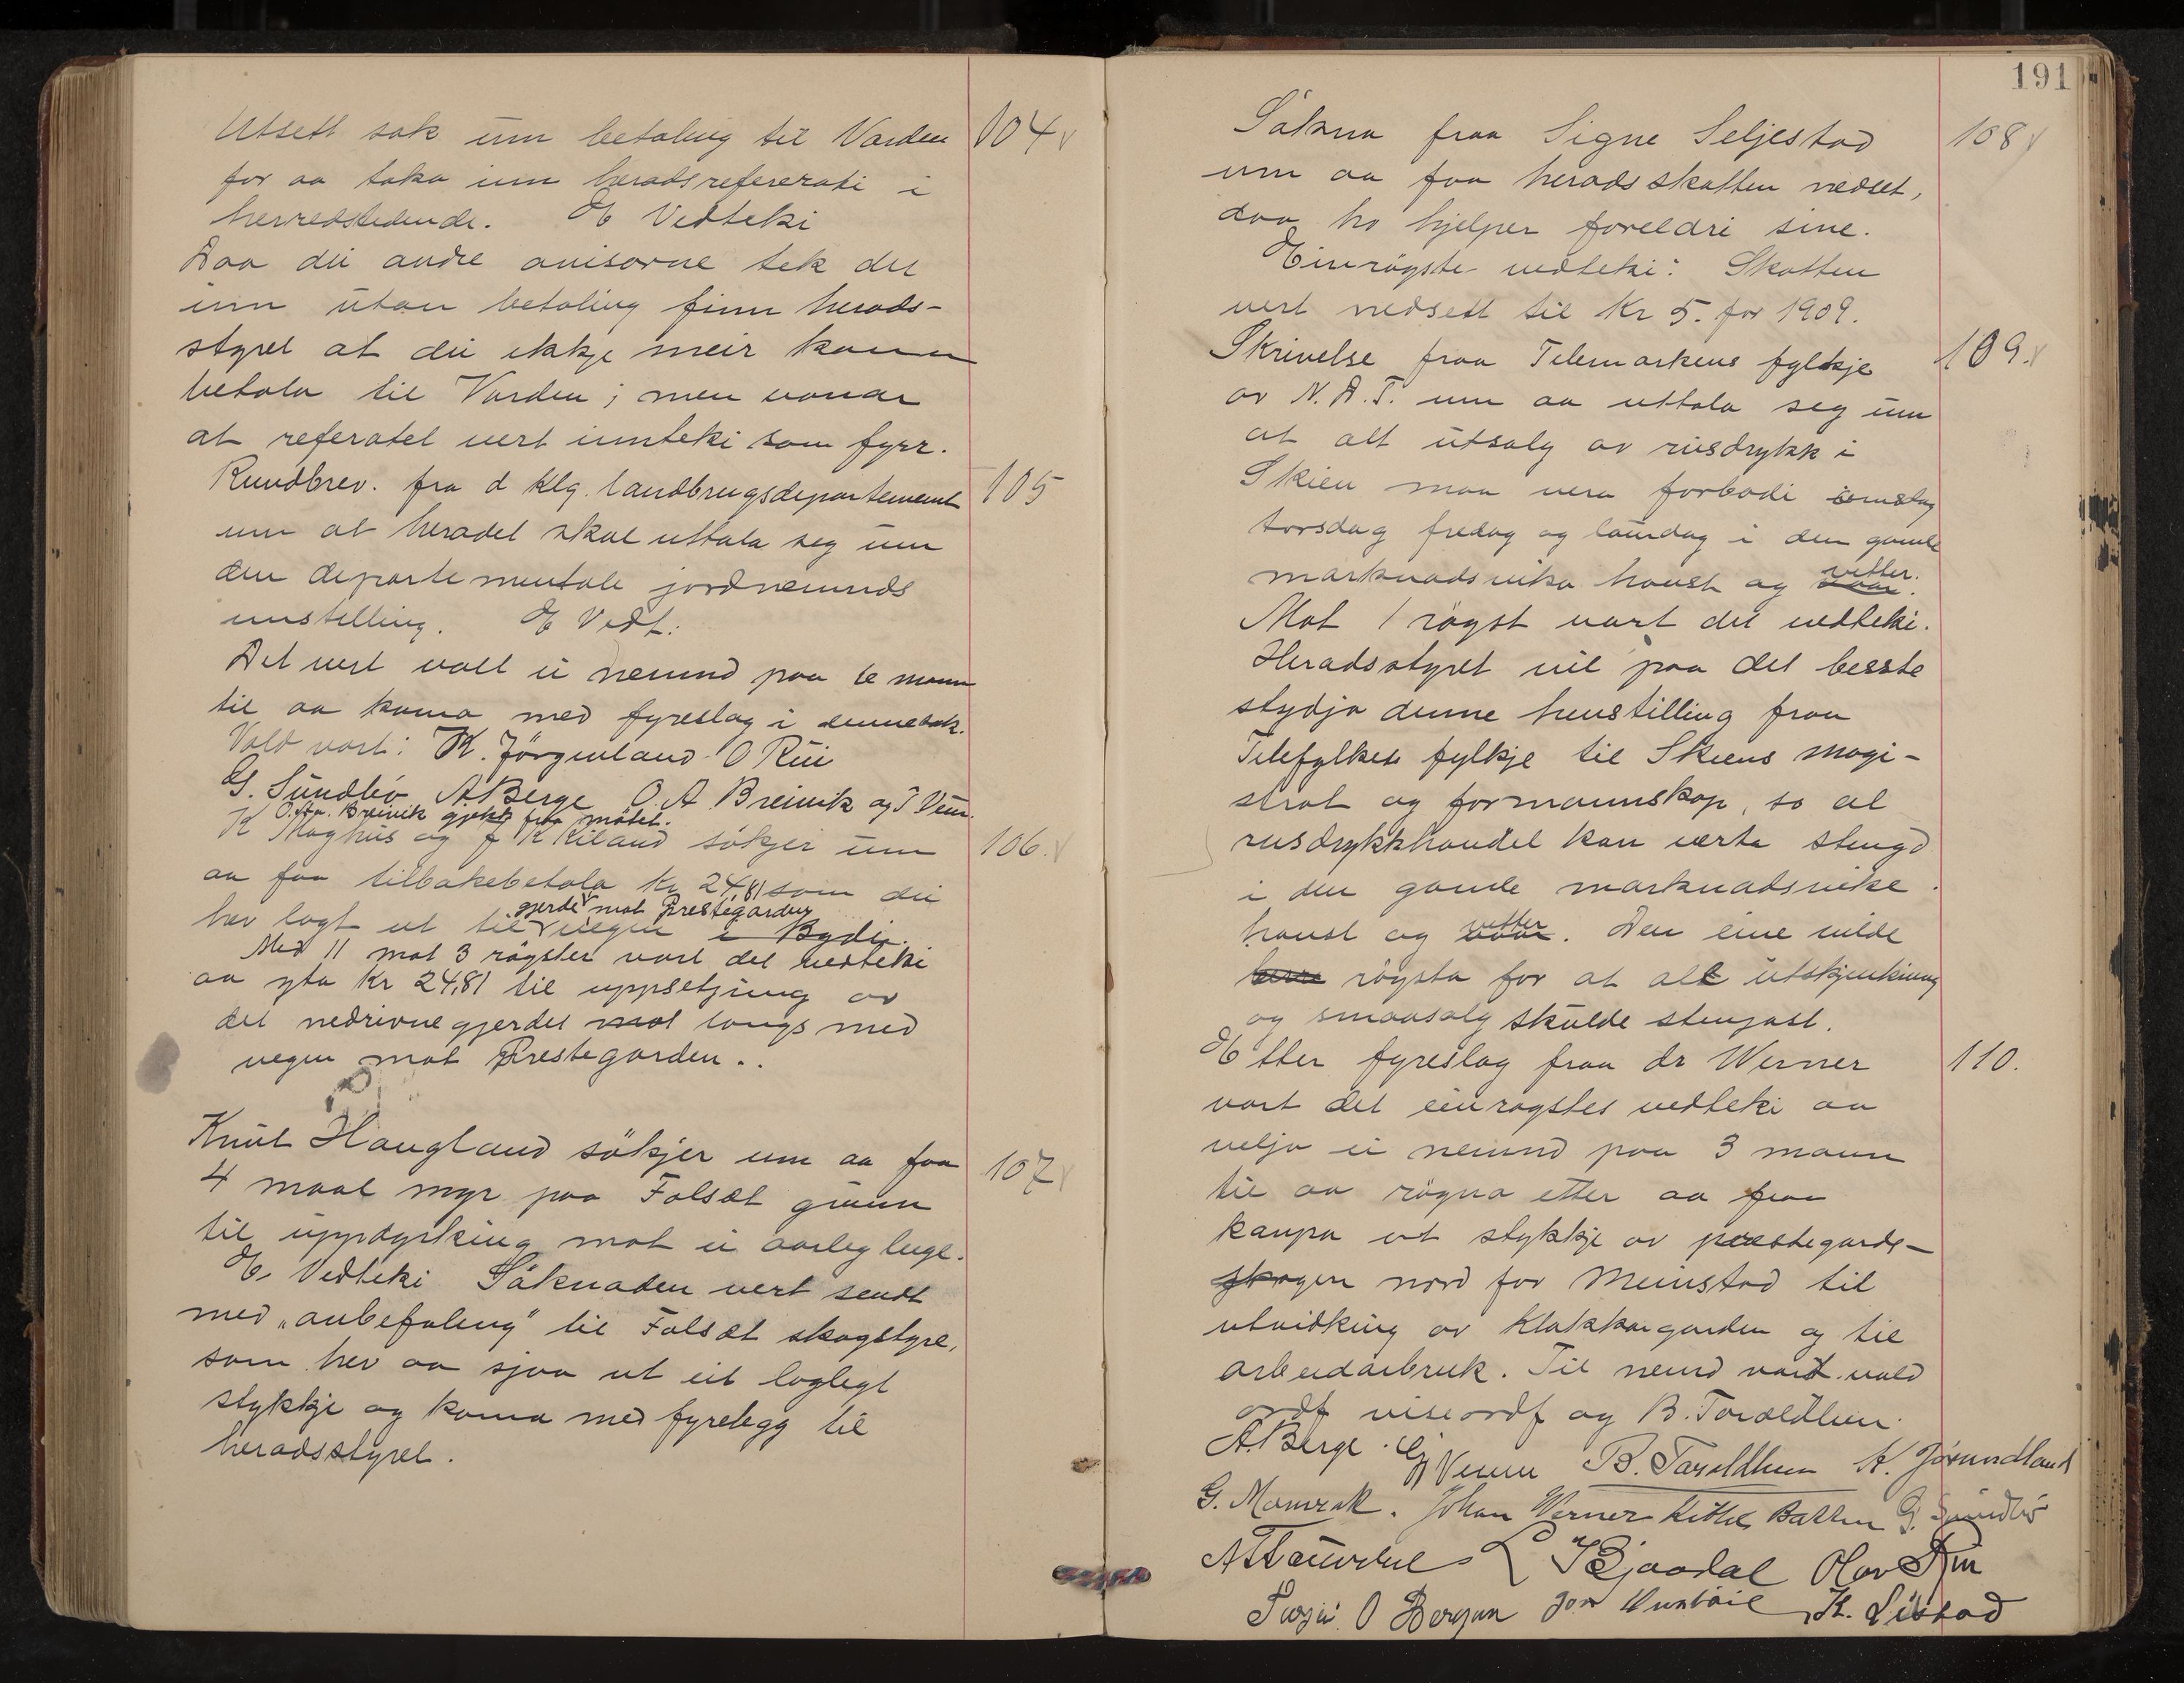 Utsett sak um betaling til Varden 104
for aa taka inn heradsreferati i
herredstidende. E Vedteki
Daa dei andre avisorne tek det
inn utan betaling finn herads-
styret at dei ikkje meir kann
betala til Varden; men vonar
at referatet vert innteki som fyrr.
Rundbrev. fra d klg. landbrugsdepartement 105
um at heradet skal uttala seg um
den departementale jordnemnds
innstilling. E Vedt:
Det vert valt ei nemnd paa 6 mann
til aa koma med fyreslag i denne sak.
Vald vart: K. Jörgenland O Rui
G. Sundbö A Berge O. A. Breivik og T Veum.
Breivik gjekk fraa mötet.
K Haghus og J K Kiland sökjer um 106.
aa faa tilbakebetala Kr 24,81 som dei
gjerde mot Prestegarden
hev lagt ut til vegen i Bydi.
Med 11 mot 3 rögster vart det vedteki
aa yta Kr 24,81 til uppsetjing av
det nedrivne gjerdet mot langs med
vegen mot Prestegarden..
Knut Haugland sökjer um aa faa 107
4 maal myr paa Folsæt grunn
til uppdyrking mot ei aarleg leige.
E. Vedteki Søknaden vert sendt
med „anbefaling" til Folsæt skogstyre,
som hev aa sjaa ut eit laglegt
stykkje og koma med fyrelegg til
heradsstyret.
191
Søkna fraa Signe Seljestad 108
um aa faa heradsskatten nedset,
daa ho hjelper foreldri sine.
Einrögste vedteki: Skatten
vert nedsett til Kr 5. for 1909.
Skrivelse fraa Telemarkens fylkje 109.
av N. A. T. um aa uttala seg um
at alt utsalg av rusdrykk i
Skien maa vera forbodi onsdag
torsdag fredag og laurdag i den gamle
vetter.
marknadsvika haust og vaar.
Mot 1 rögst vart det vedteki.
Heradsstyret vil paa det besste
stydja denne henstilling fraa
Telefylket fylkje til Skiens magi-
strat og formannskap, so at
rusdrykkhandel kan verta stengd
i den gamle marknadsvike
vetter
haust og vaar. Den eine vilde
bera rögsta for at all utskjenkning
og smaasalg skulde stengast.
Etter fyreslag fraa dr Werner 110.
vart det einrøgstes vedteki aa
velja ei nemnd paa 3 mann
til aa røgna etter aa faa
kaupa eit stykkje av prestegards-
skogen nord for Meinstad til
utvidking av Klokkargarden og til
arbeidarbruk. Til nemd vart vald
ordf viseordf og B. Taraldlien.
A. Berge. T Veum B. Taraldlien K. Jörundland
G. Momrak. Johan Werner Kittil Bakken G. Sundbö
K Bjaadal Olav Rui
O Bergan Jon K. Listad